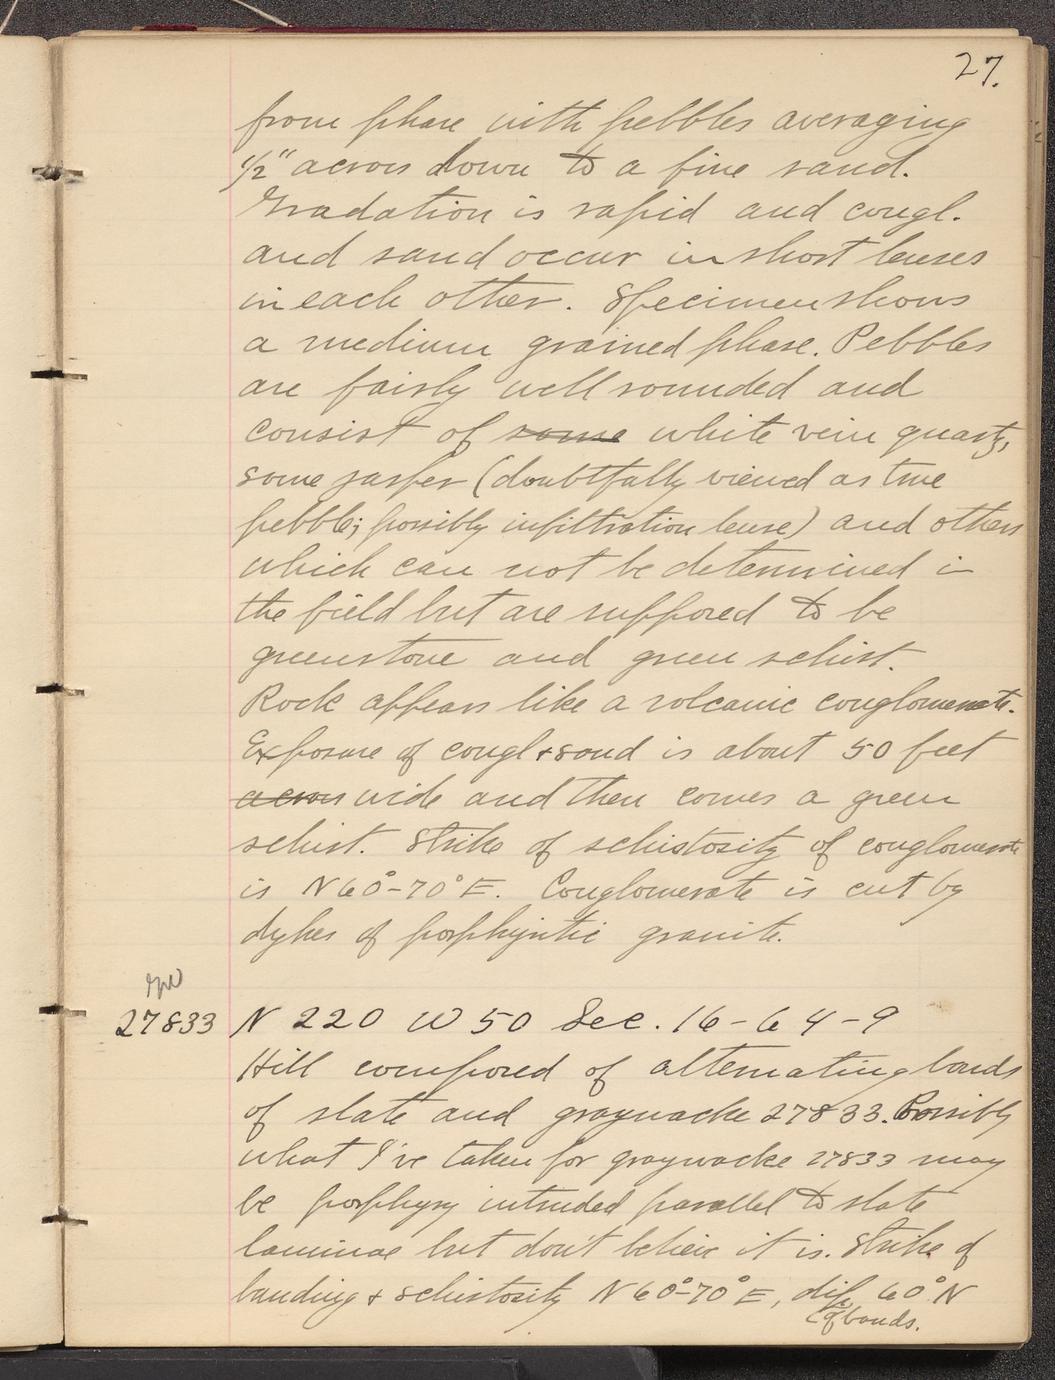 27.
from phase with pebbles averaging
1/2" across down to a fine sand.
Gradation is rapid and congl.
and sand occur in short lenses
in each other. Specimen shows
a medium grained phase. Pebbles
are fairly well rounded and
consist of some white vein quartz,
some jasper (doubtfully viewed as true
pebble; possibly infiltration lense) and others
which can not be determined in
the field but are supposed to be
greenstone and green schist.
Rock appears like a volcanic conglomerate.
Exposure of congl + sand is about 50 feet
across wide and then comes a green
schist. Strike of schistosity of conglomerate
is N60°-70°E. Conglomerate is cut by
dykes of porphyritic granite.
27833 N 220 W 50 Sec. 16-64-9
Hill composed of alternating bands
of slate and graywacke 27833. Possibly
what I've taken for graywacke 27833 may
be porphyry intruded parallel to slate
laminae but don't believe it is. Strike of
banding + schistosity N60°-70°E, dip 60°N
of bands.